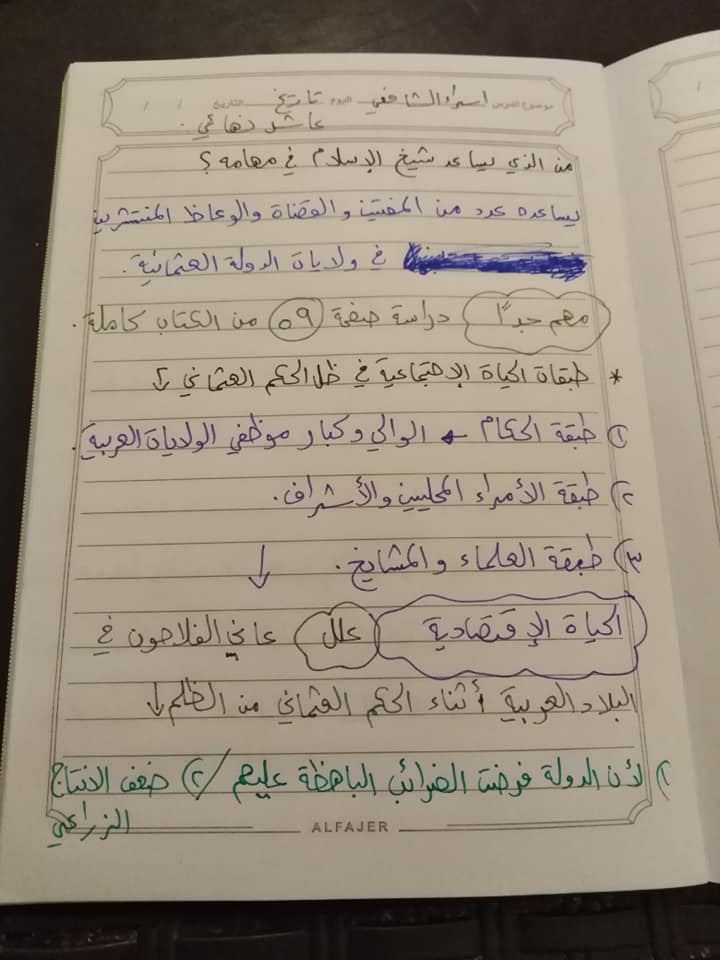 موضوع الدرس اسراء الشافعي اليوم تاريخ التاريخ / /
عاشر نهائي.
من الذي يساعد شيخ الإسلام في مهامه؟
يساعده عدد من المفتين والقضاة والوعاظ المنتشرين
في ولايات الدولة العثمانية.
مهم جدًا دراسة صفحة ٥٩ من الكتاب كاملة.
* طبقات الحياة الإجتماعية في ظل الحكم العثماني ↓
١) طبقة الحكام ← الوالي وكبار موظفي الولايات العربية.
٢) طبقة الأمراء المحليين والأشراف.
٣) طبقة العلماء والمشايخ. ↓
الحياة الإقتصادية علل عانى الفلاحون في
البلاد العربية أثناء الحكم العثماني من الظلم ↓
١) لأن الدولة فرضت الضرائب الباهظة عليهم / ٢) ضعف الانتاج
الزراعي
ALFAJER